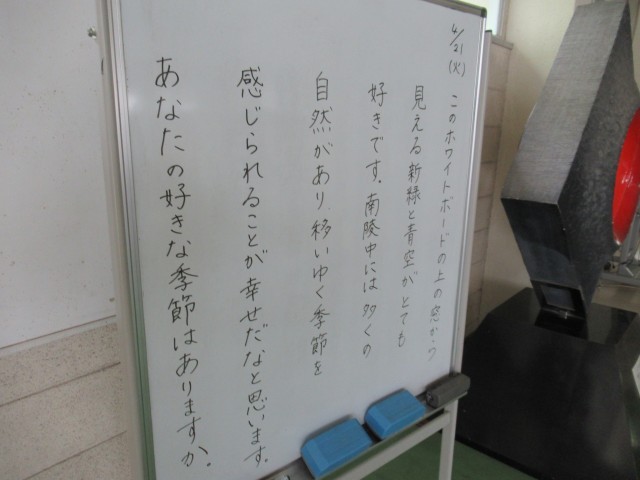 4/21(火) このホワイトボードの上の窓から
見える新緑と青空がとても
好きです。南陵中には多くの
自然があり移いゆく季節を
感じられることが幸せだなと思います。
あなたの好きな季節はありますか。